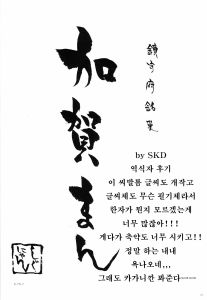 鎮守府銘菓
加賀まん
by SKD
역식자 후기
이 씨발롬 글씨도 개작고
글씨체도 무슨 필기체라서
한자가 뭔지 모르겠는게
너무 많잖아!!!
게다가 축약도 너무 시키고!!
정말 하는 내내
욕나오네...
그래도 카가니깐 봐준다ㅡㅡ